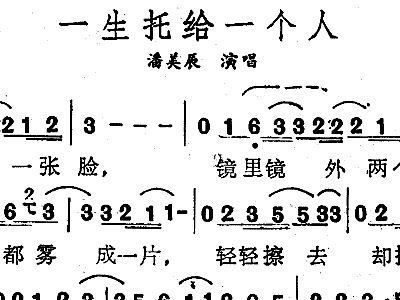 一生托给一个人
潘美辰 演唱
212 | 3 - - - | 0 1 6 3 3 2 2 2 1
一张 脸， 镜里镜 外 两
6 3 3 3 2 1 1 - | 0 2 3 5 5 3 3 | 0 2
都 雾 成一片， 轻轻擦 去 却